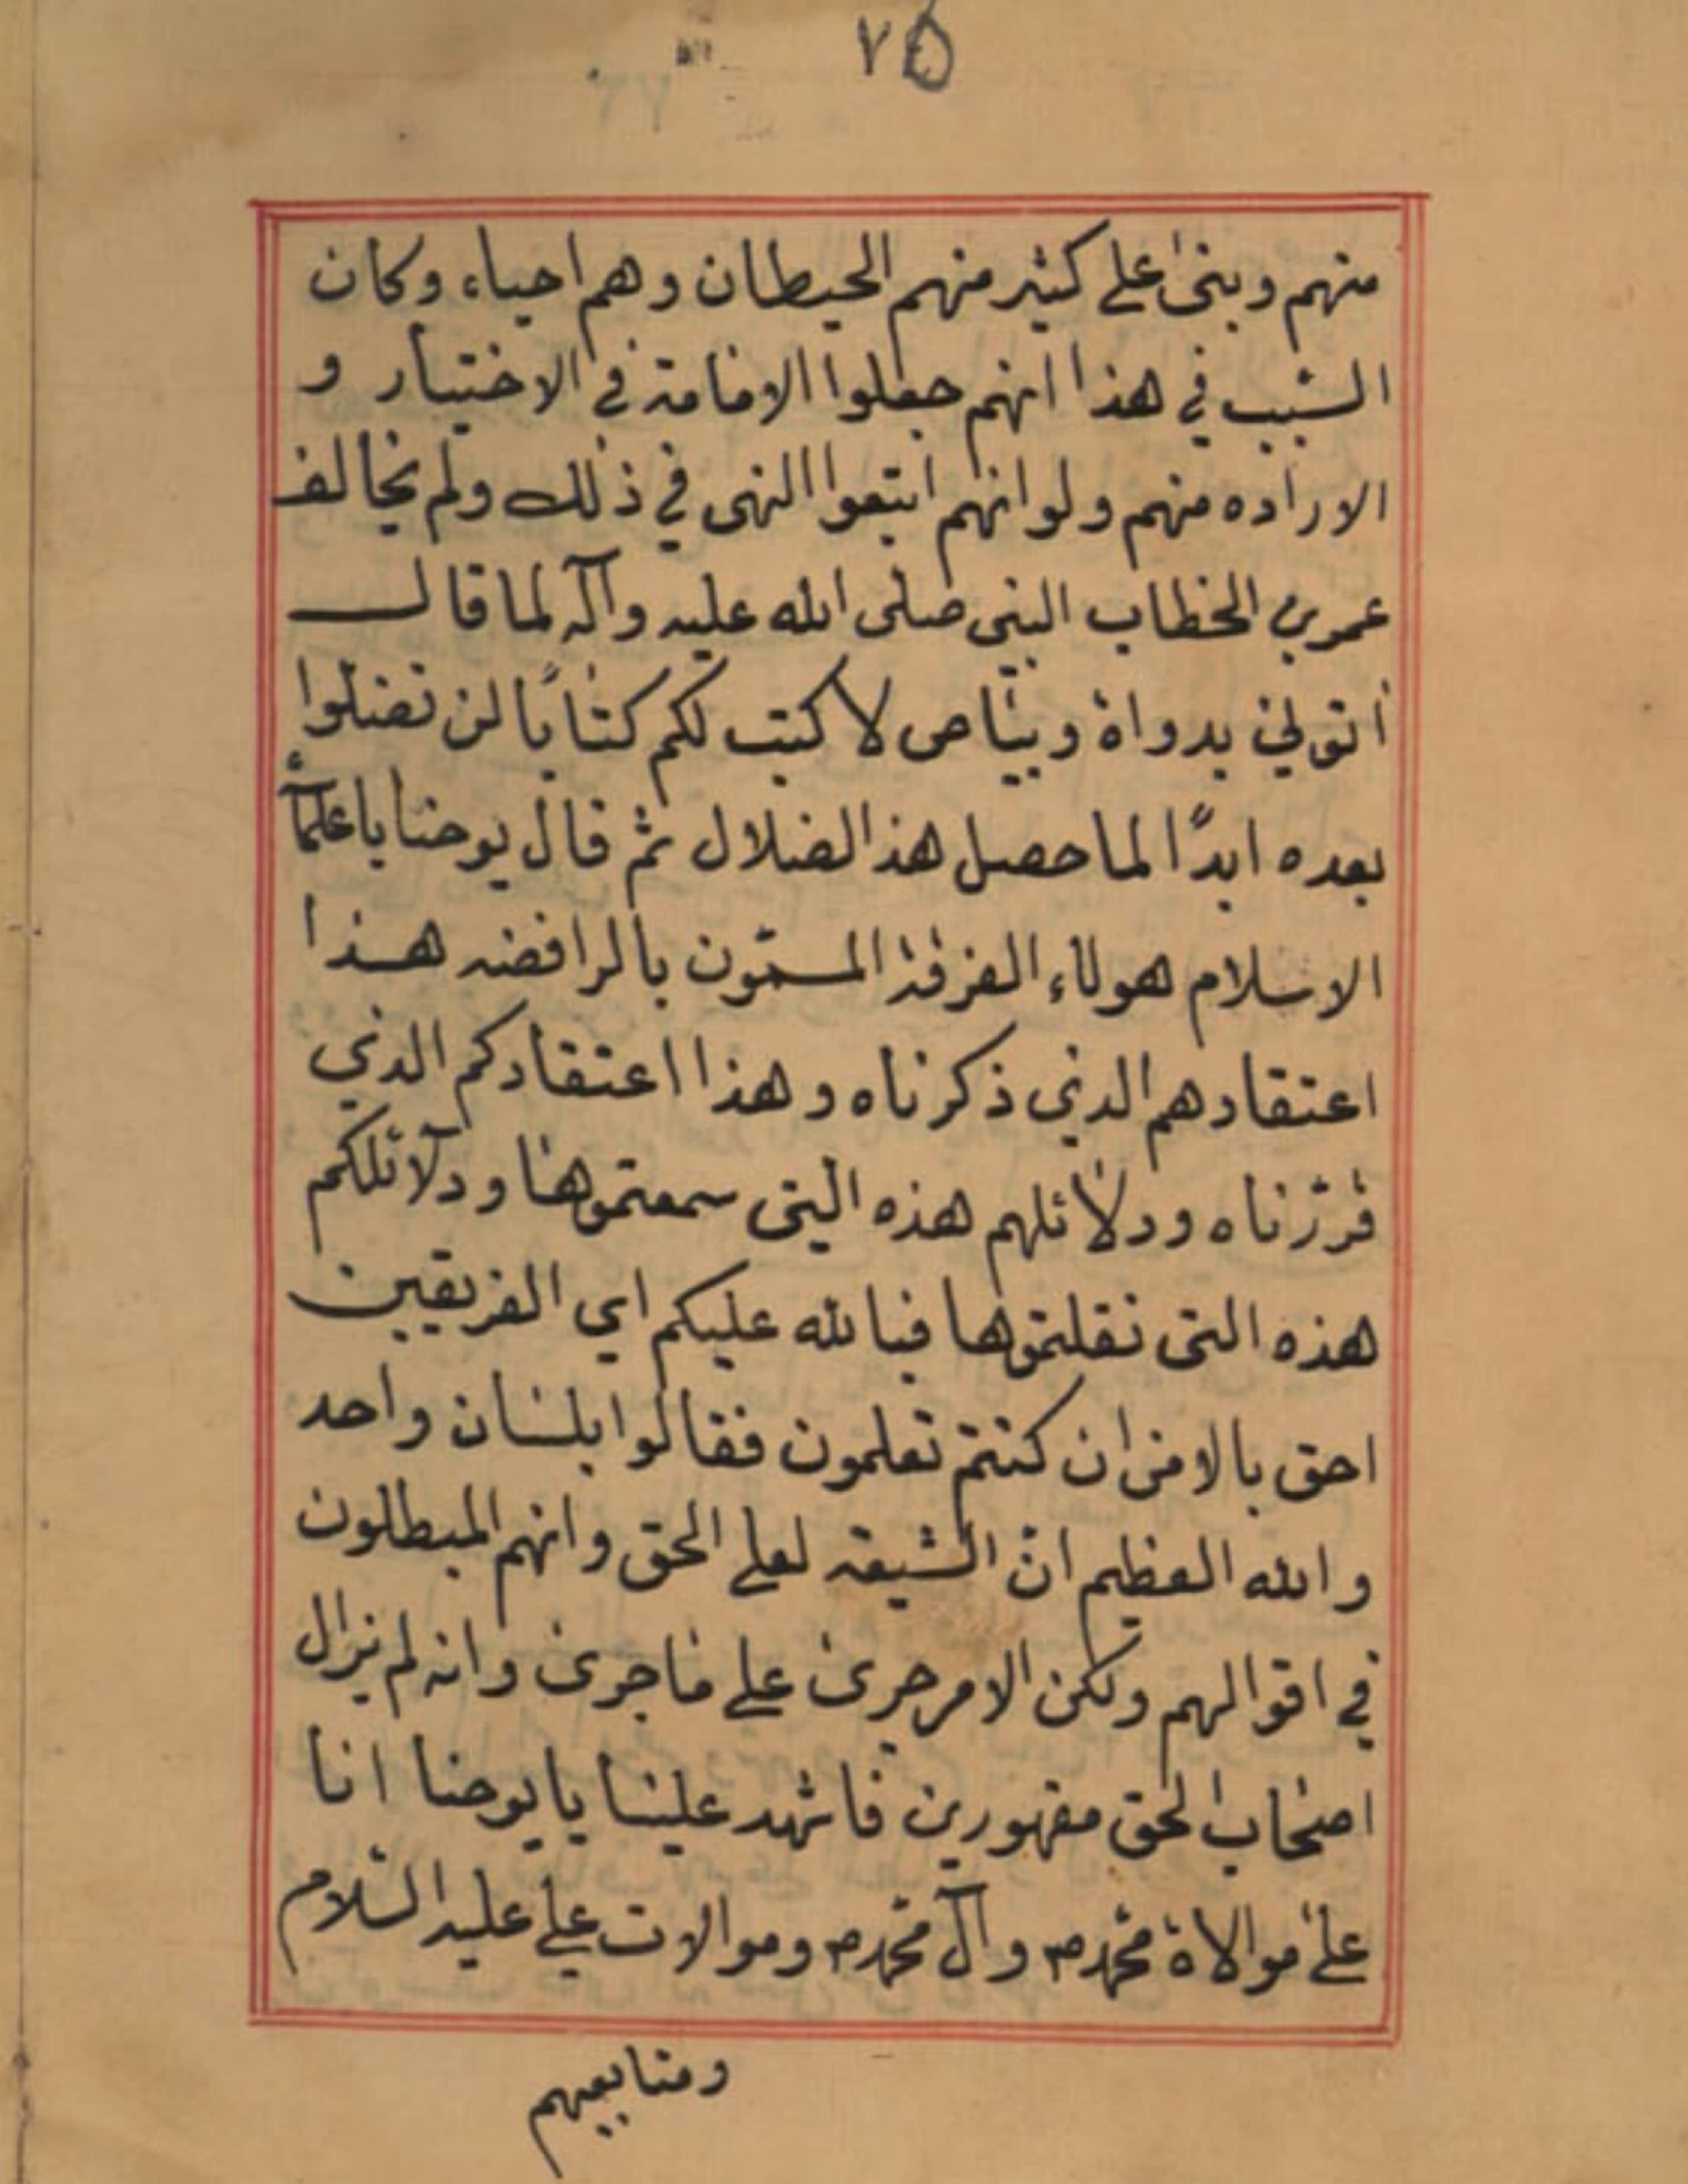 ٧٥
منهم وبنى على كثير منهم الحيطان وهم احياء وكان
السبب في هذا انهم جعلوا الامامة في الاختيار و
الاراده منهم ولو انهم اتبعوا النهى في ذلك ولم يخالف
عمر بن الخطاب النبي صلى الله عليه وآله لما قال
أتوني بدواة وبياض لاكتب لكم كتابًا لن تضلوا
بعده ابدًا لما حصل هذا الضلال ثم قال يوحنا يا علمآء
الاسلام هولاء الفرقة المسمّون بالرافضه هذا
اعتقادهم الذي ذكرناه وهذا اعتقادكم الذي
قرّرناه ودلائلهم هذه التي سمعتموها ودلآئلكم
هذه التي نقلتموها فبالله عليكم اي الفريقين
احق بالامر ان كنتم تعلمون فقالوا بلسان واحد
والله العظيم انّ الشيعة لعلى الحق وانهم المبطلون
في اقوالهم ولكن الامر جرى على ما جرى وانه لم يزال
اصحاب الحق مقهورين فاشهد علينا يا يوحنا انا
على موالاة محمد ص وآل محمد ص وموالات علي عليه السّلام
ومتابعيهم